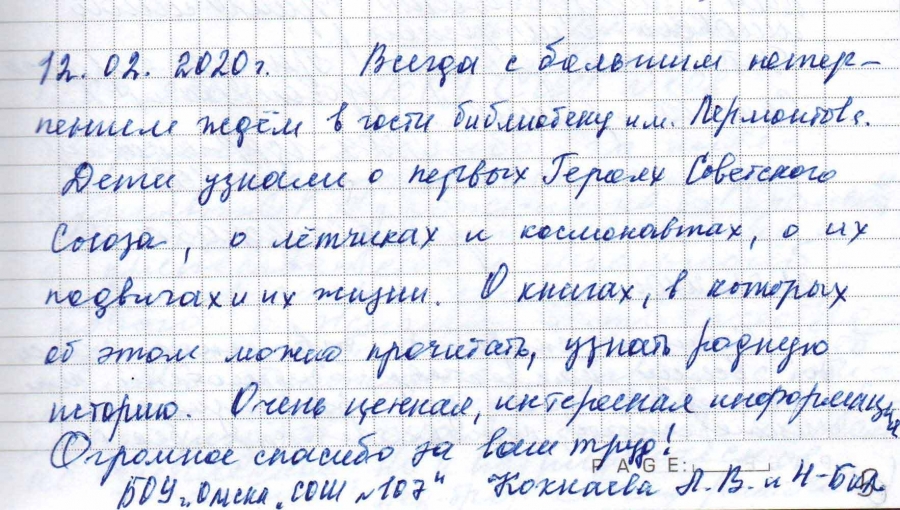 12.02.2020г. Всегда с большим нетер-
пением ждём в гости библиотеку им. Лермонтова.
Дети узнали о первых Героях Советского
Союза, о лётчиках и космонавтах, о их
подвигах и их жизни. О книгах, в которых
об этом можно прочитать, узнать родную
историю. Очень ценная, интересная информация
Огромное спасибо за ваш труд!
PAGE:
БОУ г. Омска "СОШ №107" Л.В. и